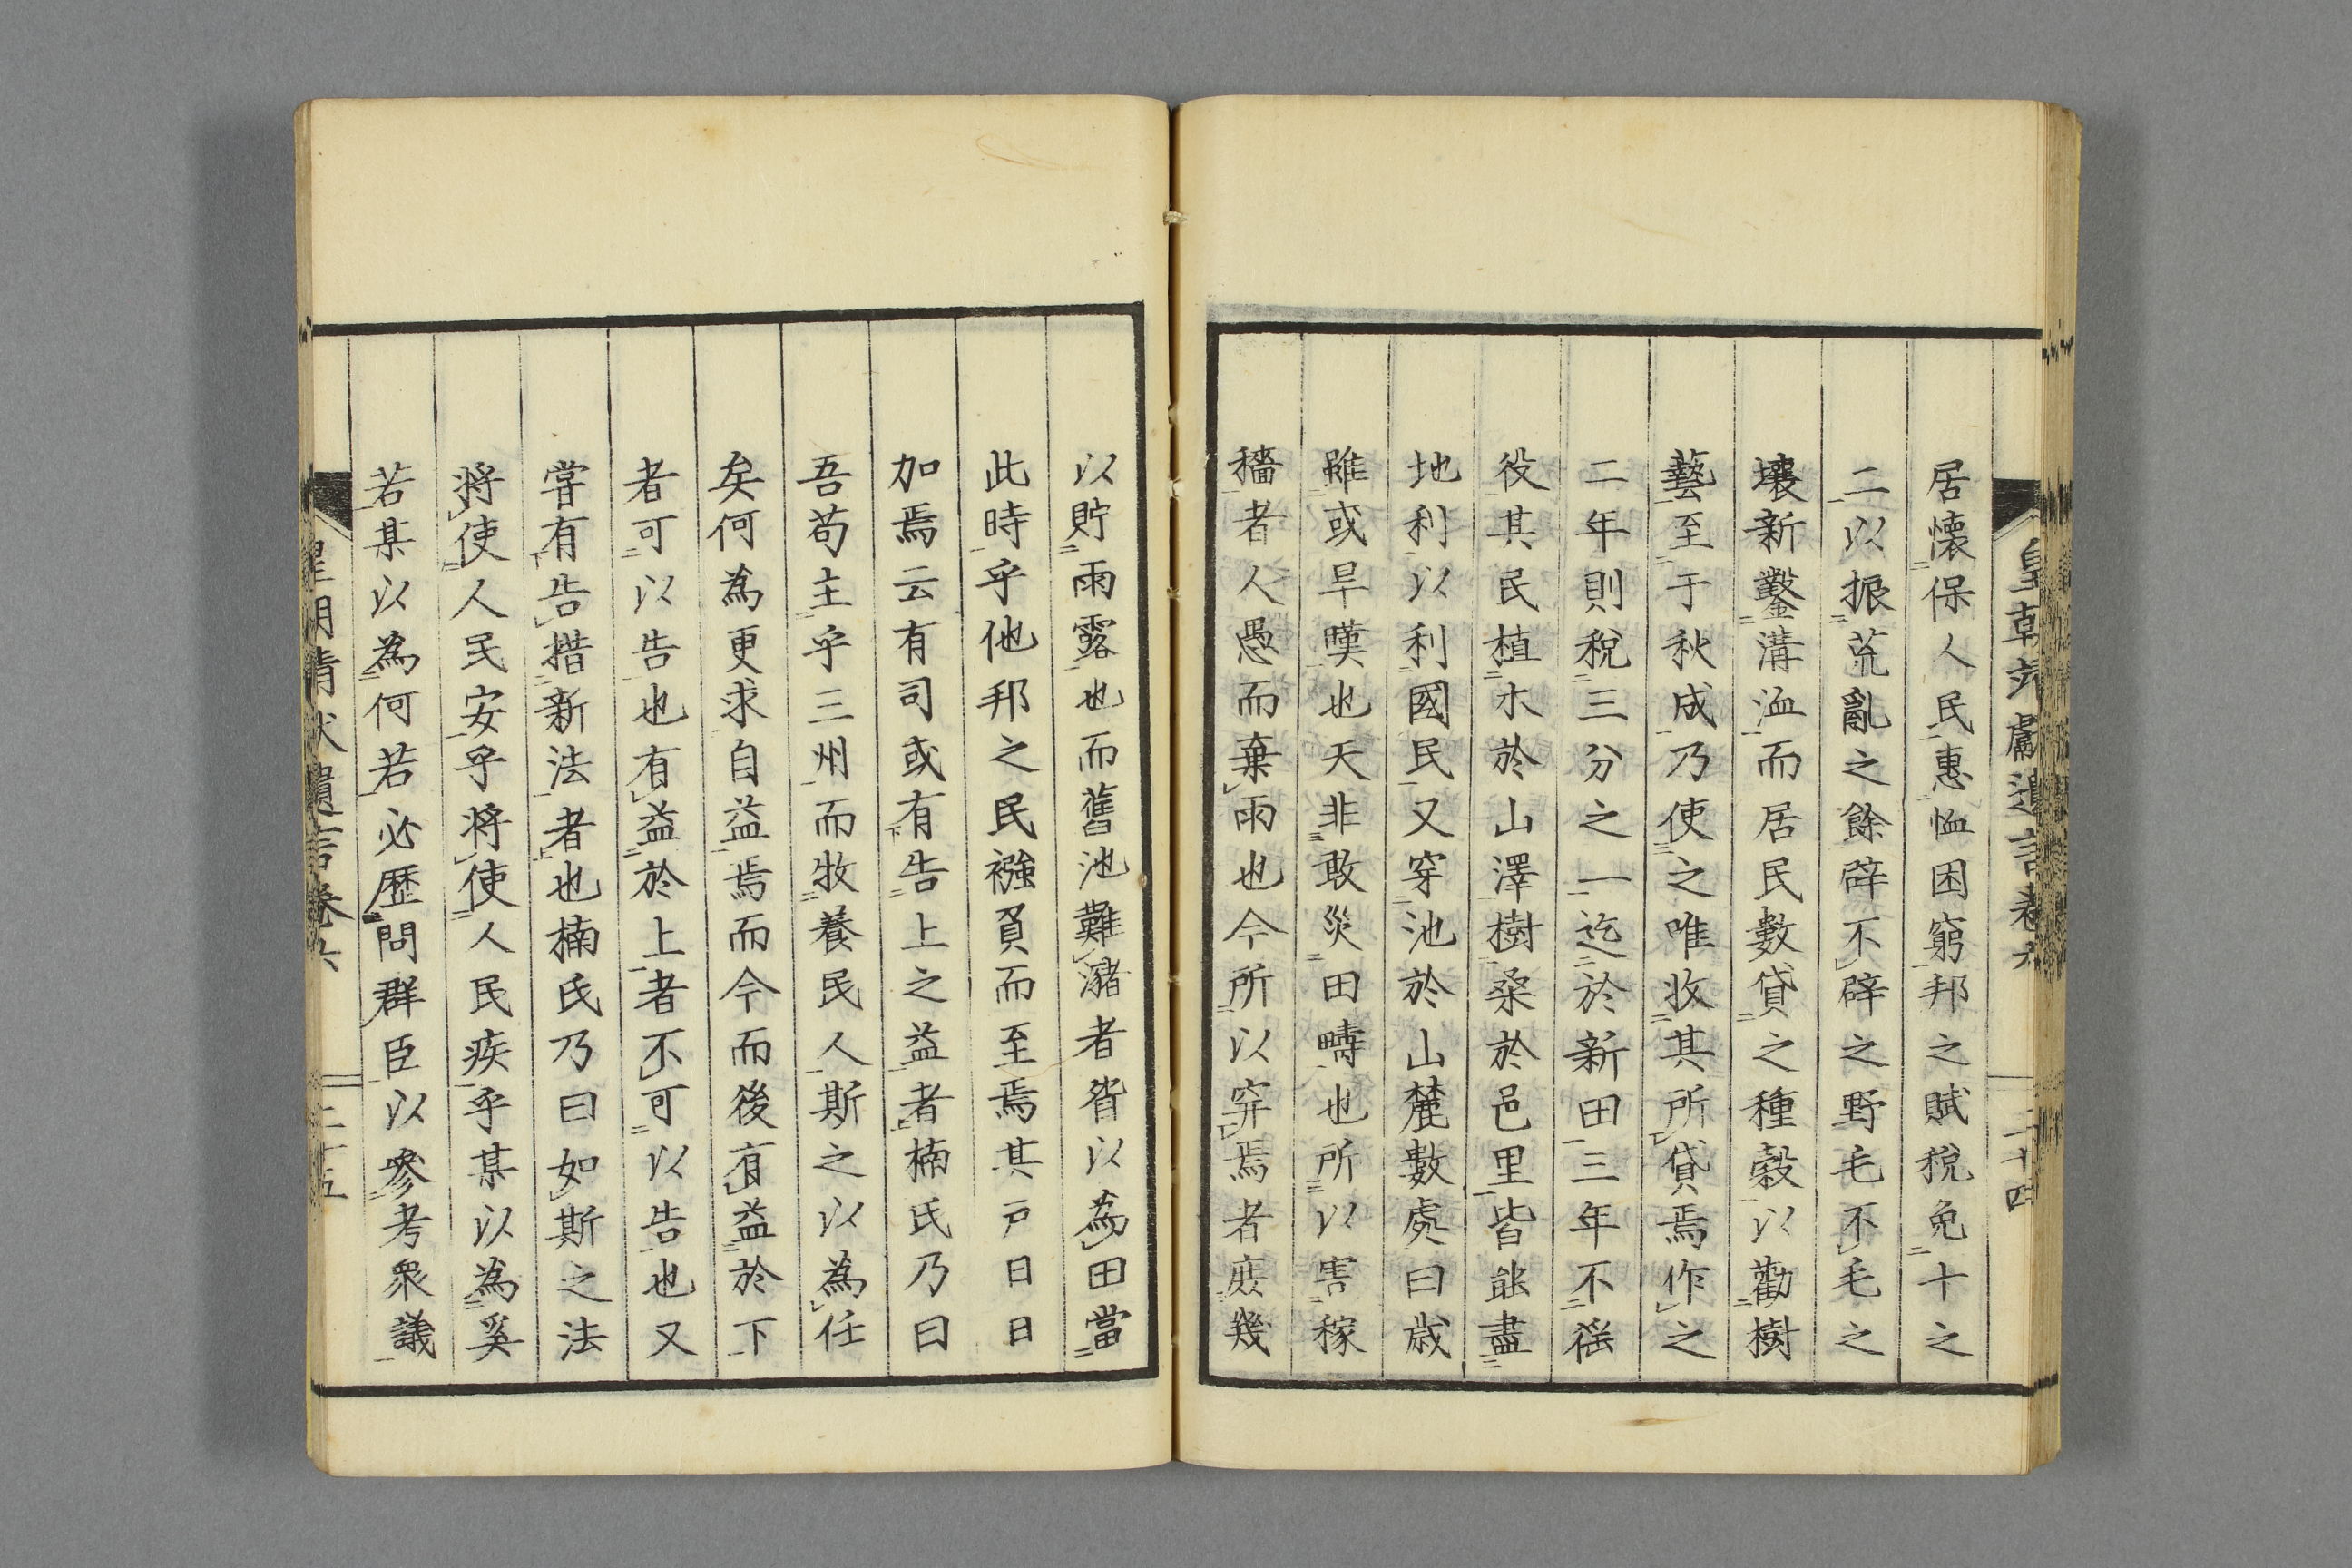 居懷保人民惠恤困窮邦之賦稅免十之
二以振荒亂之餘辟不辟之野毛不毛之
壤新鑿溝洫而居民數貸之種穀以勸樹
藝至于秋成乃使之唯收其所貸焉作之
二年則稅三分之一迄於新田三年不徭
役其民植木於山澤樹桑於邑里皆能盡
地利以利國民又穿池於山麓數處曰歲
雖或旱暵也天非敢災田疇也所以害稼
穡者人愚而棄雨也今所以穿焉者庶幾
以貯雨露也而舊池難瀦者皆以為田當
此時乎他邦之民襁負而至焉其戸日日
加焉云有司或有告上之益者楠氏乃曰
吾苟主乎三州而牧養民人斯之以為任
矣何為更求自益焉而今而後有益於下
者可以告也有益於上者不可以告也又
嘗有告措新法者也楠氏乃曰如斯之法
將使人民安乎將使人民疾乎某以為奚
若某以為何若必歷問群臣以參考眾議
遺言卷六
二十五